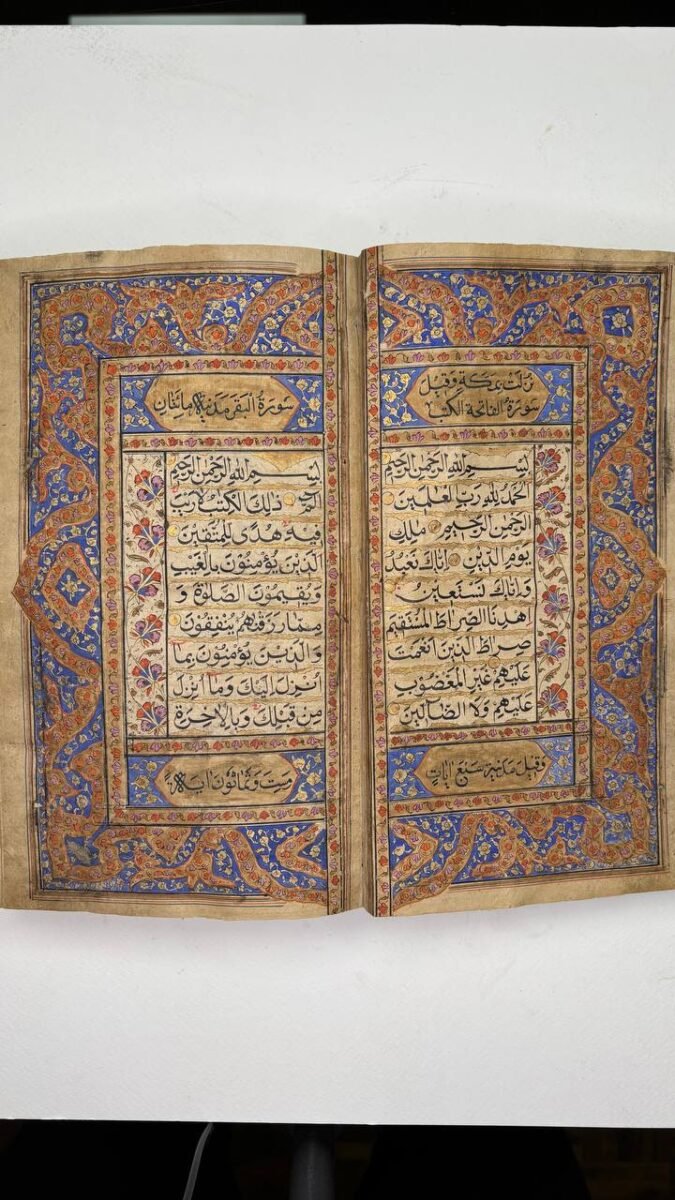 نزلت بمكة وقيل
سورة الفاتحة الكتب
بسم الله الرحمن الرحيم
الحمد لله رب العلمين
الرحمن الرحيم ملك
يوم الدين اياك نعبد
واياك نستعين
اهدنا الصراط المستقيم
صراط الذين انعمت
عليهم غير المغضوب
عليهم ولا الضالين
وقيل مدنية سبع ايات
سورة البقر مدنية مائتان
بسم الله الرحمن الرحيم
الم ذلك الكتب لا ريب
فيه هدى للمتقين
الذين يؤمنون بالغيب
ويقيمون الصلوة و
مما رزقنهم ينفقون
والذين يؤمنون بما
انزل اليك وما انزل
من قبلك وبالاخرة
وست وثمانون اية